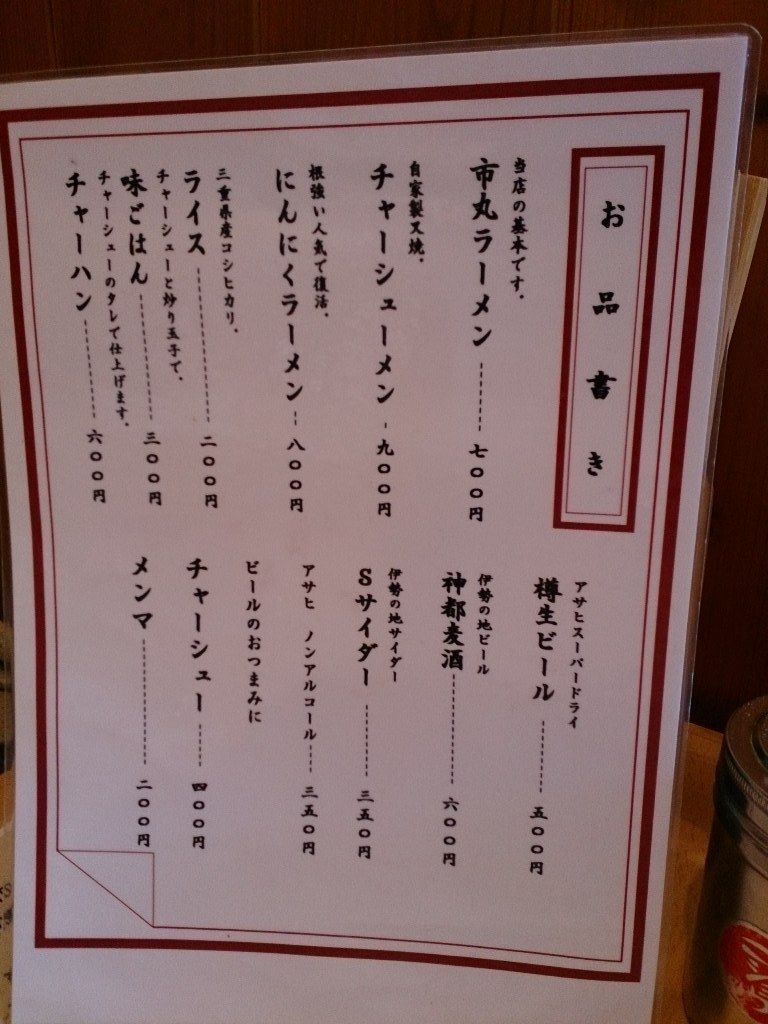 お品書き
当店の基本です。
市丸ラーメン 七〇〇円
自家製叉焼。
チャーシューメン 九〇〇円
根強い人気で復活。
にんにくラーメン 八〇〇円
三重県産コシヒカリ。
ライス 二〇〇円
チャーシューと炒り玉子で。
味ごはん 三〇〇円
チャーシューのタレで仕上げます。
チャーハン 六〇〇円
アサヒスーパードライ
樽生ビール 五〇〇円
伊勢の地ビール
神都麦酒 六〇〇円
伊勢の地サイダー
Sサイダー 三五〇円
アサヒ ノンアルコール 三五〇円
ビールのおつまみに
チャーシュー 四〇〇円
メンマ 二〇〇円